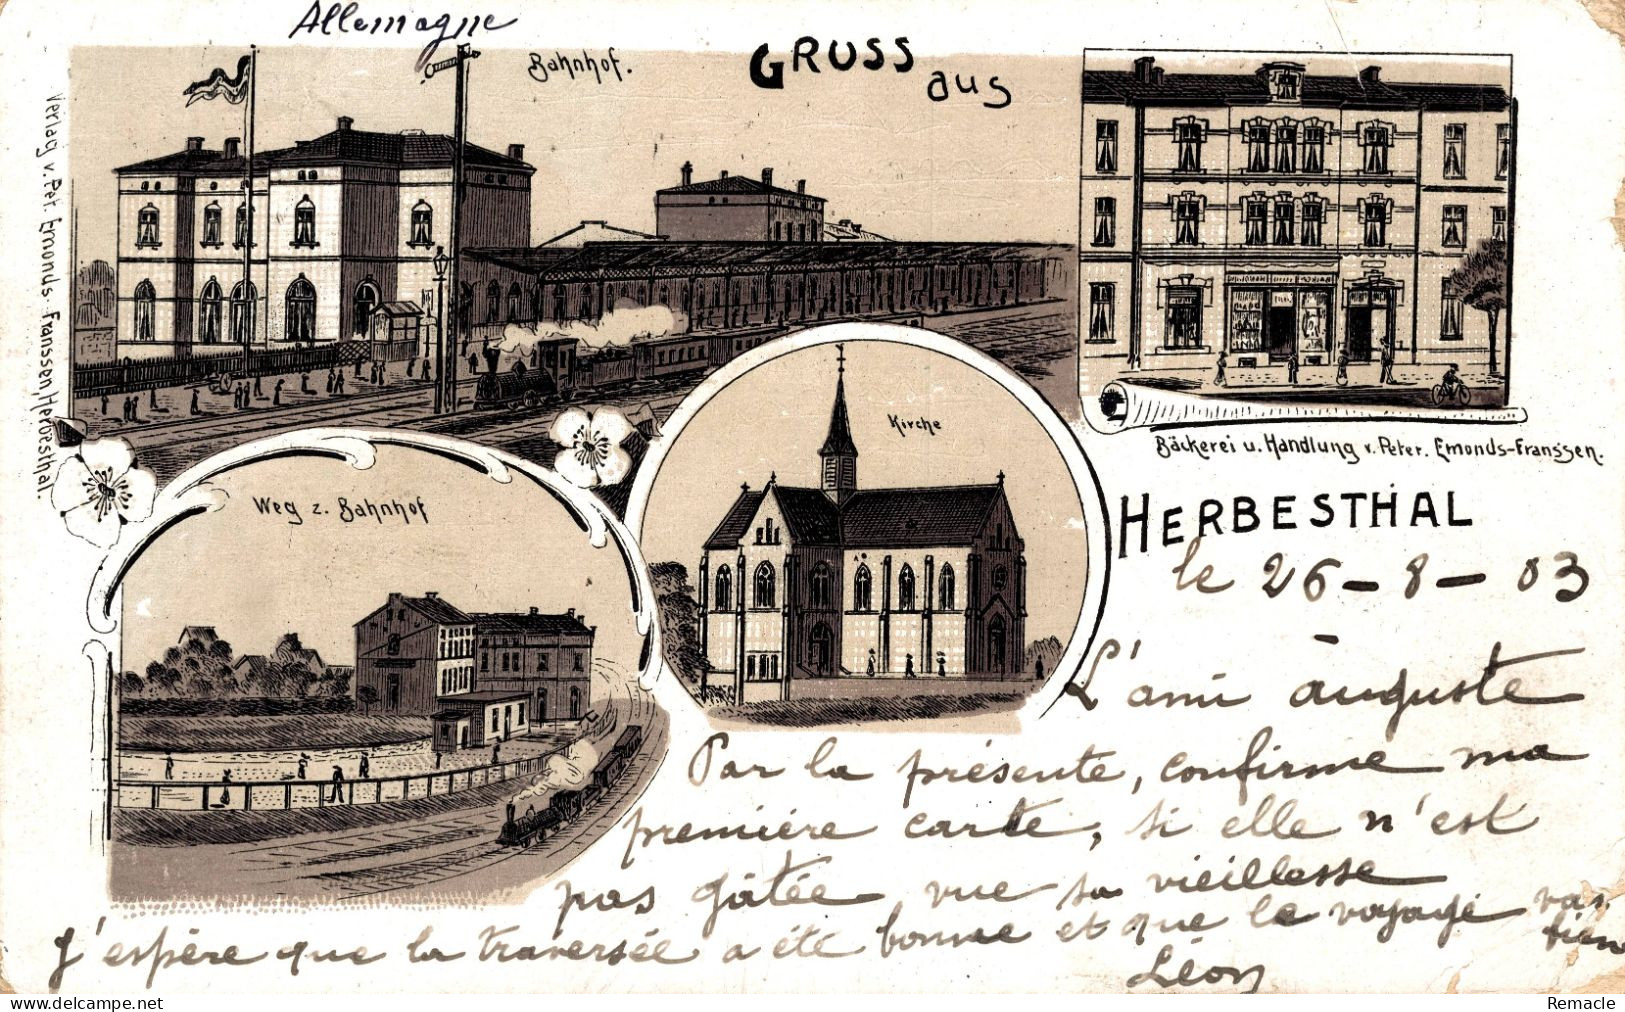 Allemagne
Bahnhof.
GRUSS
aus
Verlag v. Pet. Emonds-Franssen, Herbesthal.
Kirche
Bäckerei u. Handlung v. Peter. Emonds-Franssen.
Weg z. Bahnhof
HERBESTHAL
le 26-8-03
L'ami auguste
Par la présente, confirme ma
première carte, si elle n'est
pas gâtée vue sa vieillesse
J'espère que la traversée a été bonne et que le voyage va
bien
Léon
Remacle